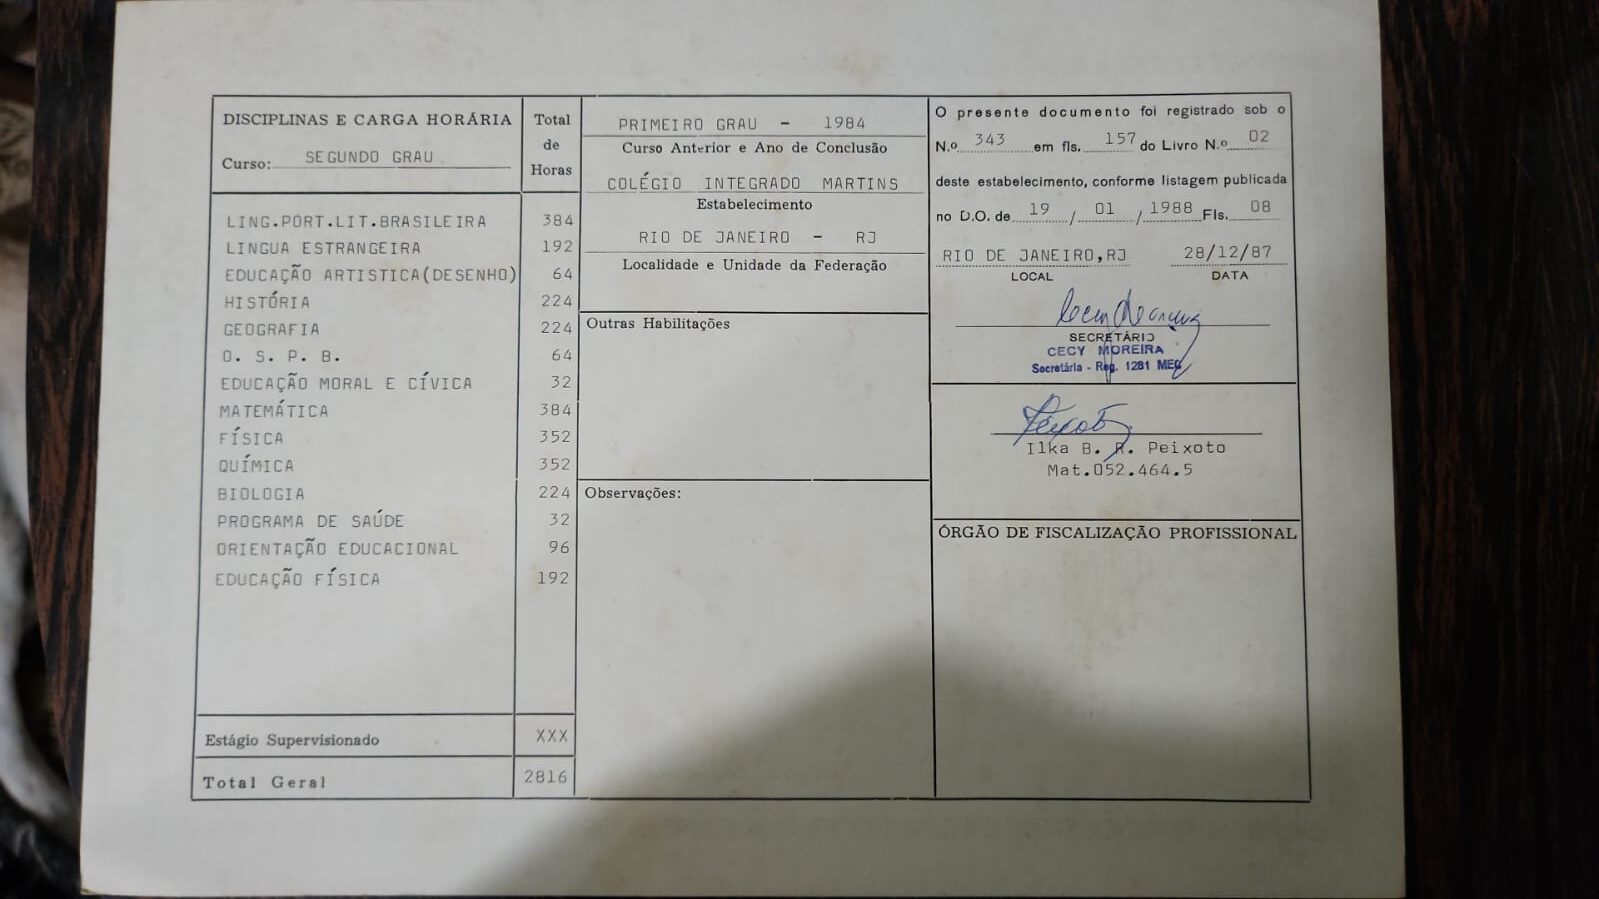 DISCIPLINAS E CARGA HORÁRIA
Curso: SEGUNDO GRAU
Total
de
Horas
LING.PORT.LIT.BRASILEIRA 384
LINGUA ESTRANGEIRA 192
EDUCAÇÃO ARTISTICA(DESENHO) 64
HISTÓRIA 224
GEOGRAFIA 224
O. S. P. B. 64
EDUCAÇÃO MORAL E CÍVICA 32
MATEMÁTICA 384
FÍSICA 352
QUÍMICA 352
BIOLOGIA 224
PROGRAMA DE SAÚDE 32
ORIENTAÇÃO EDUCACIONAL 96
EDUCAÇÃO FÍSICA 192
Estágio Supervisionado XXX
Total Geral 2816
PRIMEIRO GRAU - 1984
Curso Anterior e Ano de Conclusão
COLÉGIO INTEGRADO MARTINS
Estabelecimento
RIO DE JANEIRO - RJ
Localidade e Unidade da Federação
Outras Habilitações
Observações:
O presente documento foi registrado sob o
N.º 343 em fls. 157 do Livro N.º 02
deste estabelecimento, conforme listagem publicada
no D.O. de 19 / 01 / 1988 Fls. 08
RIO DE JANEIRO,RJ 28/12/87
LOCAL DATA
SECRETÁRIO
CECY MOREIRA
Secretária - Reg. 1281 MEC
Peixoto
Ilka B. R. Peixoto
Mat.052.464.5
ÓRGÃO DE FISCALIZAÇÃO PROFISSIONAL